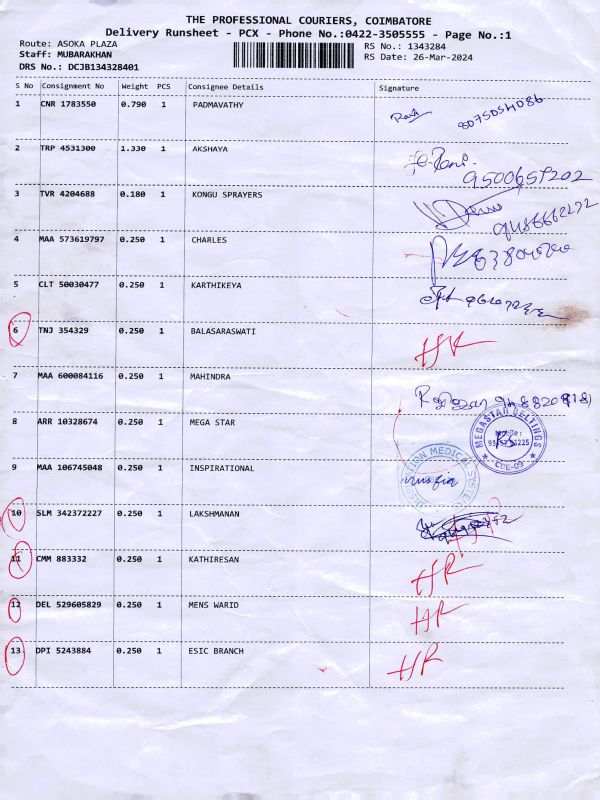 THE PROFESSIONAL COURIERS, COIMBATORE
Delivery Runsheet - PCX - Phone No.:0422-3505555 - Page No.:1
Route: ASOKA PLAZA
RS No.: 1343284
Staff: MUBARAKHAN
RS Date: 26-Mar-2024
DRS No.: DCJB134328401
S No Consignment No Weight PCS Consignee Details Signature
1 CNR 1783550 0.790 1 PADMAVATHY 8075054086
2 TRP 4531300 1.330 1 AKSHAYA
9500657202
3 TVR 4204688 0.180 1 KONGU SPRAYERS
9486662272
4 MAA 573619797 0.250 1 CHARLES
5 CLT 50030477 0.250 1 KARTHIKEYA
6 TNJ 354329 0.250 1 BALASARASWATI
7 MAA 600084116 0.250 1 MAHINDRA
8 ARR 10328674 0.250 1 MEGA STAR
MEGASTAR BELTINGS
CBE-09
9 MAA 106745048 0.250 1 INSPIRATIONAL
10 SLM 342372227 0.250 1 LAKSHMANAN
11 CMM 883332 0.250 1 KATHIRESAN HR
12 DEL 529605829 0.250 1 MENS WARID HR
13 DPI 5243884 0.250 1 ESIC BRANCH HR